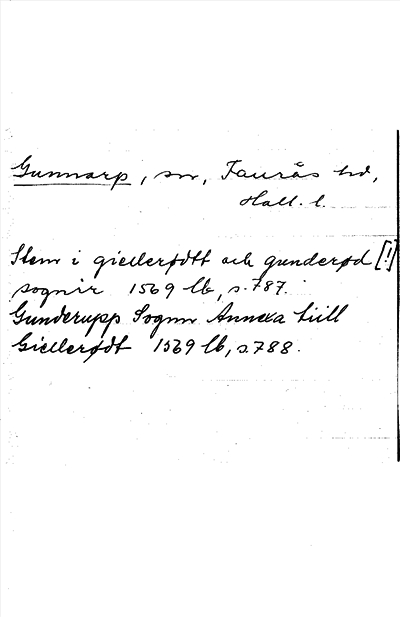 Gunnarp, sn, Faurås hd,
Hall. l.
Item i giellerødtt och gunderød [!]
sognir 1569 lb, s. 787.
Gunderupp Sognn Annexa till
Giellerødt 1569 lb, s. 788.